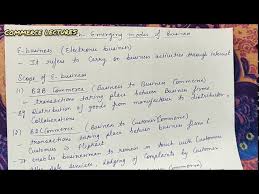 COMMERCE LECTURES
Emerging modes of Business
E-business (Electronic business)
- It refers to carry on business activities through internet
Scope of E-business
(1) B2B Commerce (Business to Business Commerce)
- transactions taking place between Business firms
Eg Distribution of goods from manufacturer to distributor,
Collaborations
(2) B2C Commerce (Business to Customer Commerce)
- transactions taking place between business firm &
Customers
- It enables businessman to remain in touch with Customer
sale services, Lodging of complaints by Customer